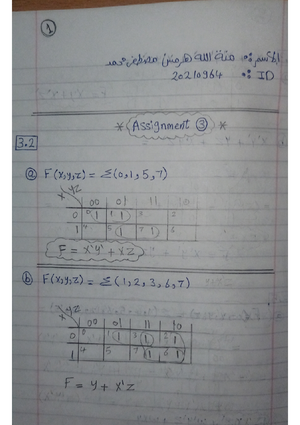 1
الاسم: منة الله هرمش مصطفى محمد
ID: 20210964
* Assignment 3 *
3.2
a F(x,y,z) = Σ(0,1,5,7)
x yz 00 01 11 10
0 0 1 1 1 3 2
1 4 5 1 7 1 6
F = x'y' + xz
b F(x,y,z) = Σ(1,2,3,6,7)
x yz 00 01 11 10
0 0 1 1 3 1 2 1
1 4 5 7 1 6 1
F = y + x'z